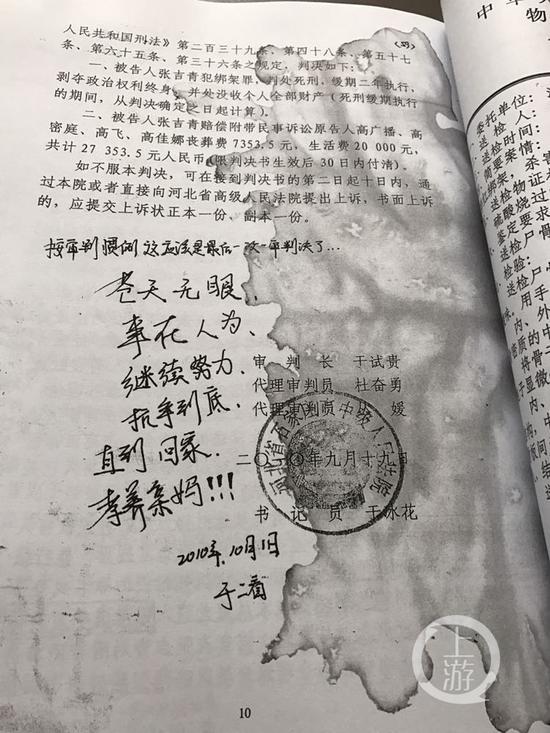 (巧)
人民共和国刑法》第二百三十九条、第四十八条、第五十七
条、第六十五条、第三十六条之规定,判决如下:
一、被告人张吉青犯绑架罪,判处死刑,缓期二年执行,
剥夺政治权利终身,并处没收个人全部财产(死刑缓期执行
的期间,从判决确定之日起计算)。
二、被告人张吉青赔偿附带民事诉讼原告人高广播、高
密庭、高飞、高佳娜丧葬费7353.5元,生活费20 000元,
共计27 353.5元人民币(限判决书生效后30日内付清)。
如不服本判决,可在接到判决书的第二日起十日内,通
过本院或者直接向河北省高级人民法院提出上诉,书面上诉
的,应提交上诉状正本一份、副本一份。
按审判惯例 这应该是最后一次一审判决了...
苍天无眼,
事在人为、
继续努力,
抗争到底,
直到回家、
孝养亲妈!!!
审 判 长 于试贵
代理审判员 杜奋勇
代理审判员 媛
年九月十九日
河北省石家庄市中级人民法院
书 记 员 于冰花
2010年.10月1日
于二看
10
中
物
委托单位:
送检人:
送检时间:
简要案情:
绑架,杀害
硫酸烧过
送检物证
鉴定要求
送检尸骨
检验:
送检尸骨
上游